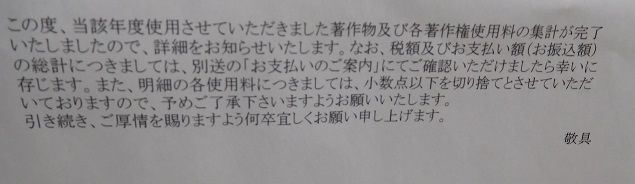 この度、当該年度使用させていただきました著作物及び各著作権使用料の集計が完了
いたしましたので、詳細をお知らせいたします。なお、税額及びお支払い額（お振込額）
の総計につきましては、別送の「お支払いのご案内」にてご確認いただけましたら幸いに
存じます。また、明細の各使用料につきましては、小数点以下を切り捨てとさせていただ
いておりますので、予めご了承下さいますようお願いいたします。
引き続き、ご厚情を賜りますよう何卒宜しくお願い申し上げます。
敬具